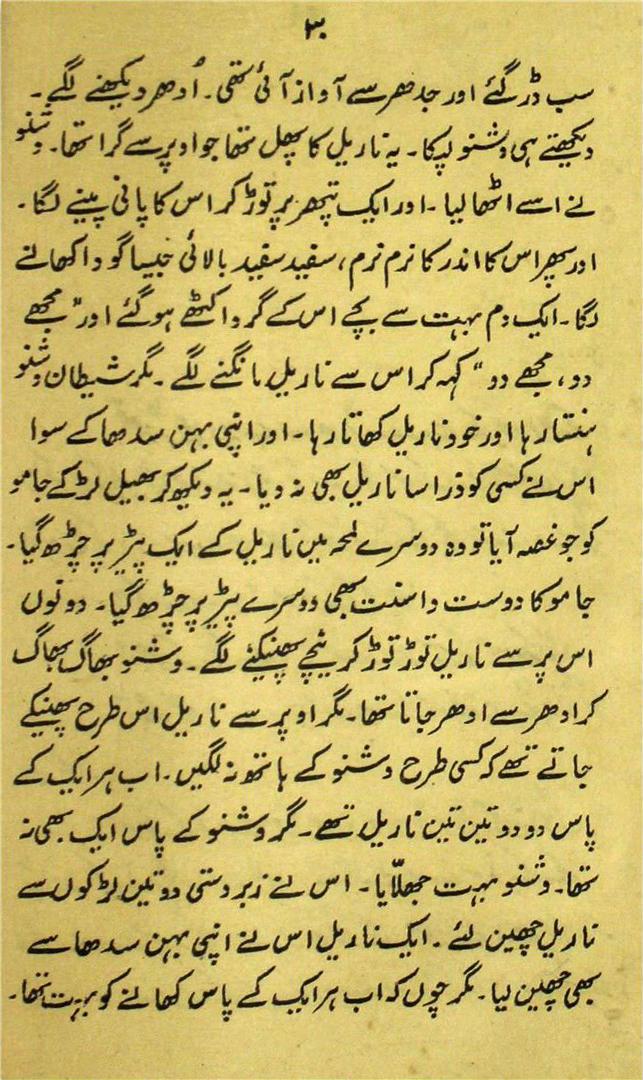 ۳
سب ڈر گئے اور جدھر سے آواز آئی تھی۔ اُدھر دیکھنے لگے۔
دیکھتے ہی وشنو لپکا۔ یہ ناریل کا پھل تھا جو اوپر سے گرا تھا۔ وشنو
نے اسے اٹھا لیا۔ اور ایک پتھر پر توڑ کر اس کا پانی پینے لگا۔
اور پھر اس کا اندر کا نرم نرم، سفید سفید بالائی جیسا گودا کھانے
لگا۔ ایک دم بہت سے بچے اس کے گرد اکٹھے ہو گئے اور "مجھے
دو، مجھے دو" کہہ کر اس سے ناریل مانگنے لگے۔ مگر شیطان وشنو
ہنستا رہا اور خود ناریل کھاتا رہا۔ اور اپنی بہن سدھا کے سوا
اس نے کسی کو ذرا سا ناریل بھی نہ دیا۔ یہ دیکھ کر بھیل لڑکے جامو
کو جو غصہ آیا تو وہ دوسرے لمحہ میں ناریل کے ایک پیڑ پر چڑھ گیا۔
جامو کا دوست واسنت بھی دوسرے پیڑ پر چڑھ گیا۔ دونوں
اس پر سے ناریل توڑ توڑ کر نیچے پھینکنے لگے۔ وشنو بھاگ بھاگ
کر ادھر سے ادھر جاتا تھا۔ مگر اوپر سے ناریل اس طرح پھینکے
جاتے تھے کہ کسی طرح وشنو کے ہاتھ نہ لگیں۔ اب ہر ایک کے
پاس دو دو تین تین ناریل تھے۔ مگر وشنو کے پاس ایک بھی نہ
تھا۔ وشنو بہت جھلّایا۔ اس نے زبردستی دو تین لڑکوں سے
ناریل چھین لئے۔ ایک ناریل اس نے اپنی بہن سدھا سے
بھی چھین لیا۔ مگر چوں کہ اب ہر ایک کے پاس کھانے کو بہت تھا۔